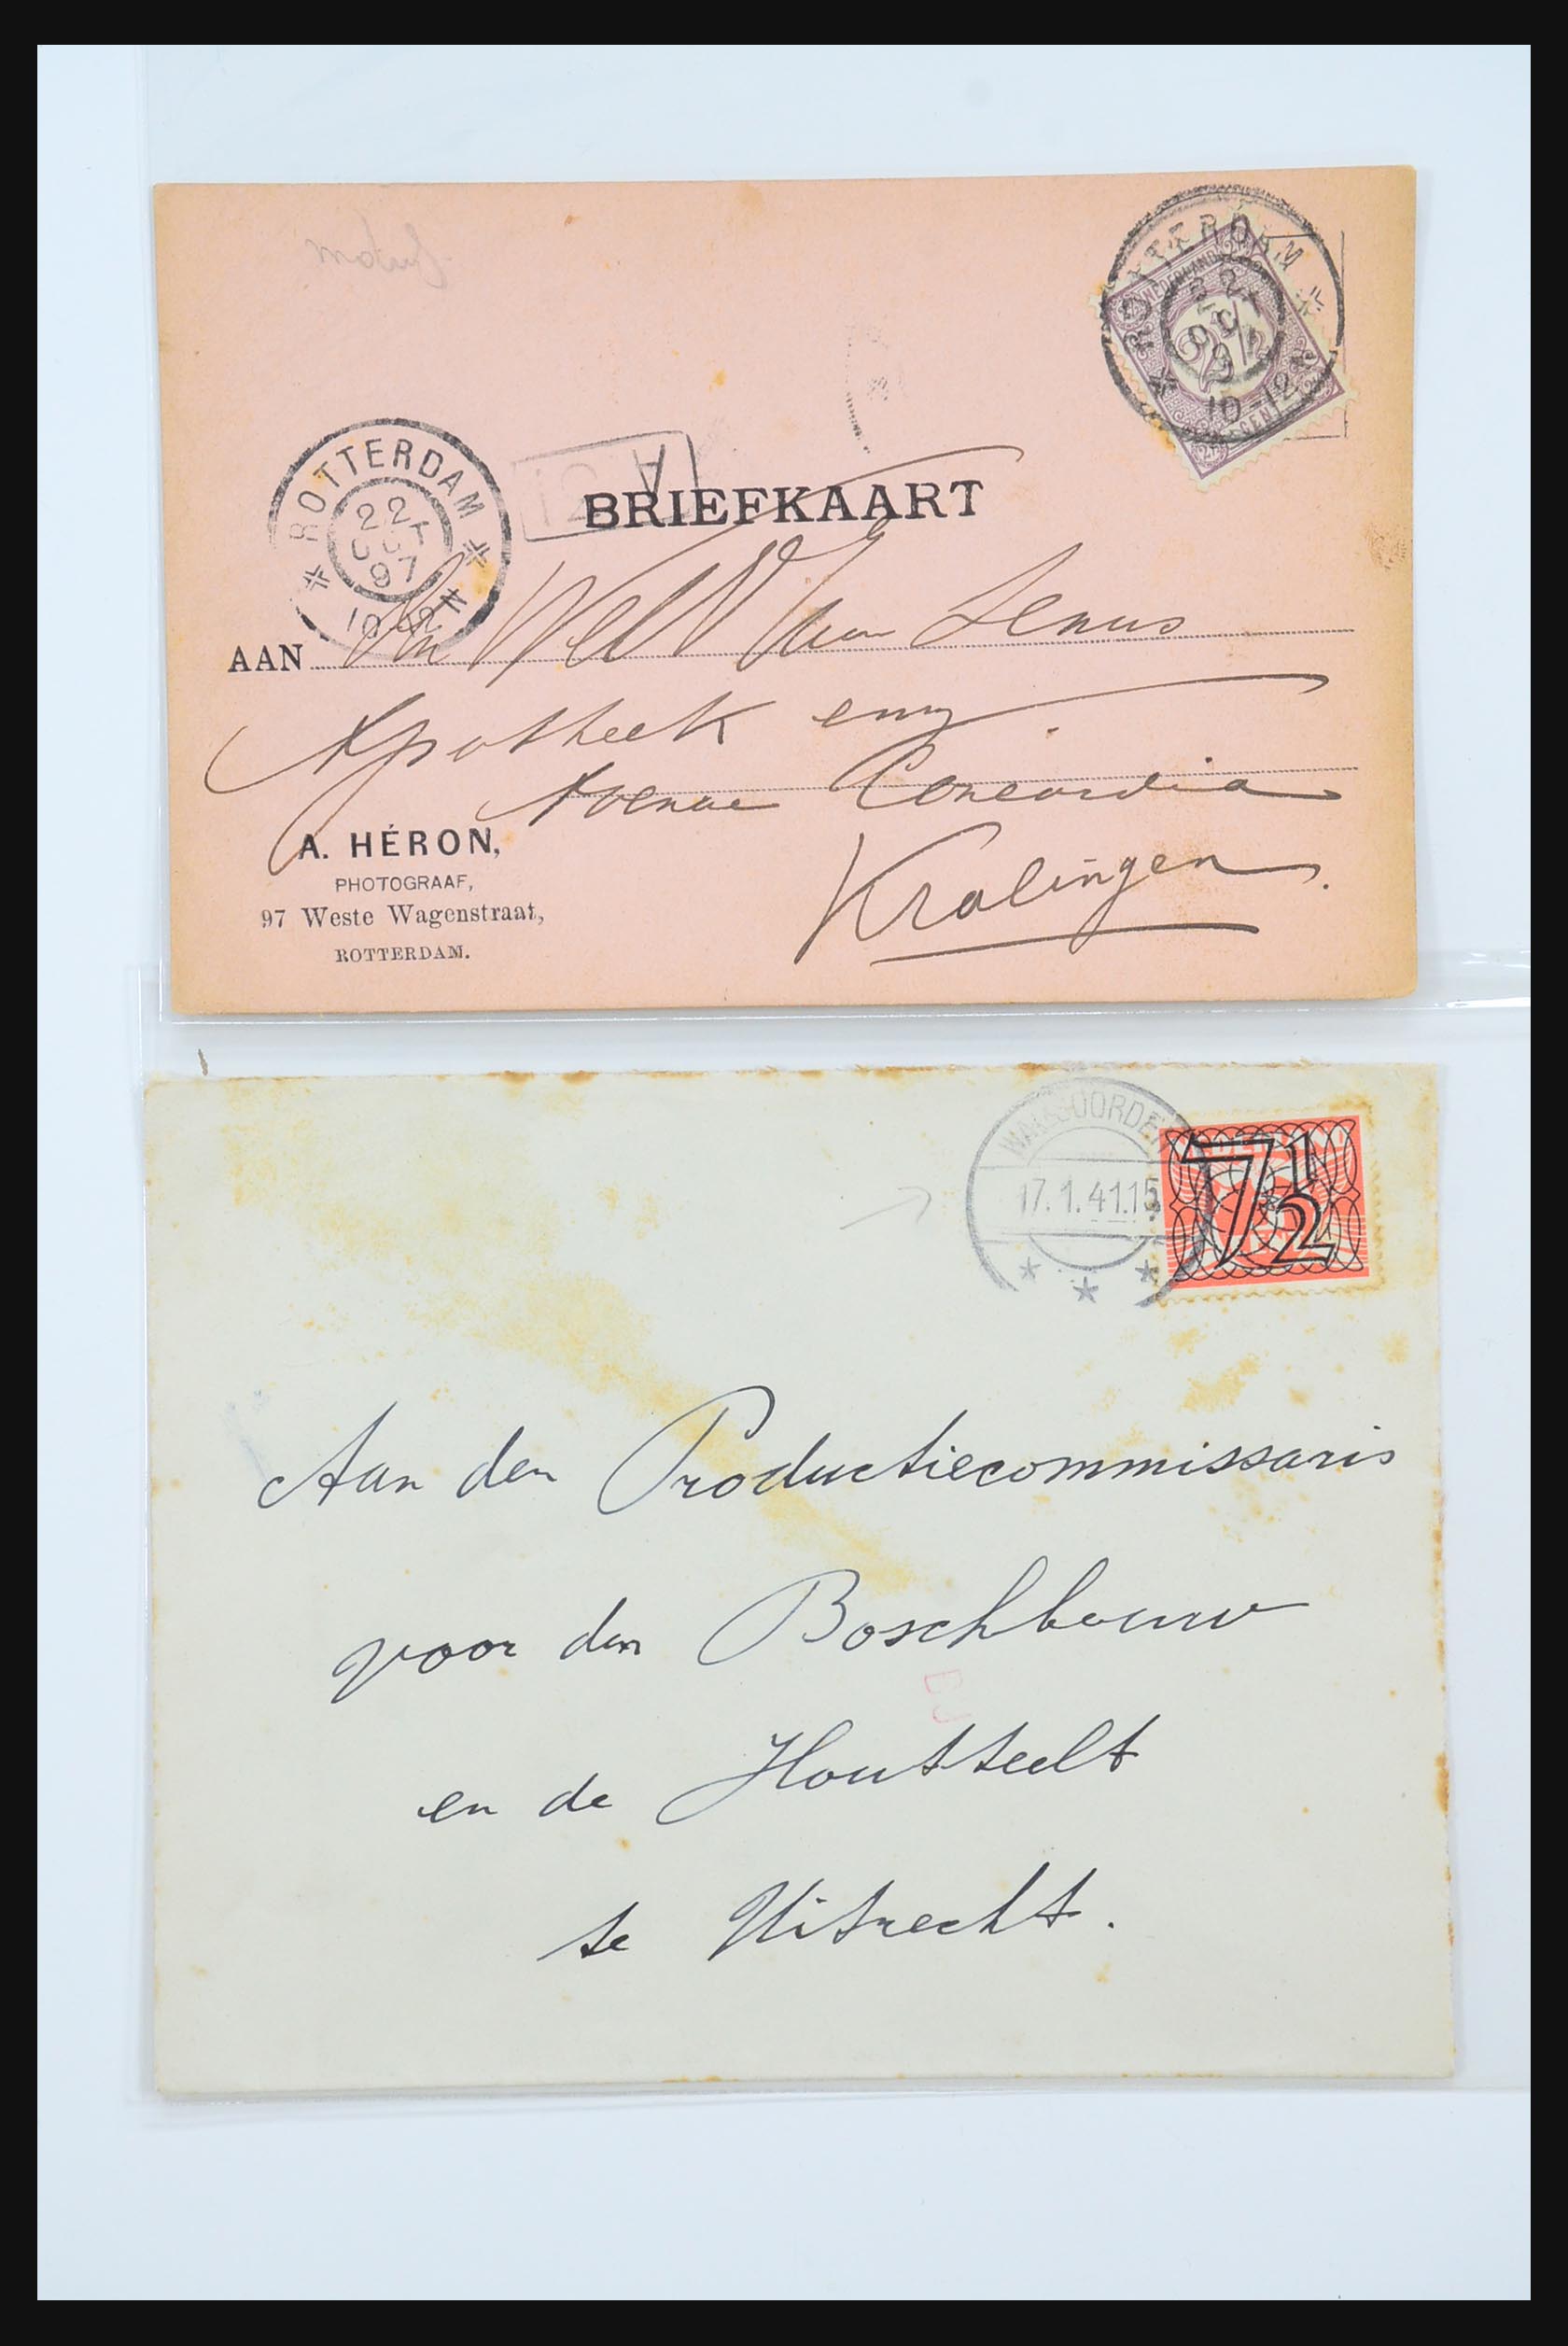 ROTTERDAM
10-12
NEDERLAND
2½
CENT
ROTTERDAM
22
OCT
97
10-12
A
BRIEFKAART
AAN
van
Apotheek
Avenue Concordia
Kralingen.
A. HÉRON,
PHOTOGRAAF,
97 Weste Wagenstraat,
ROTTERDAM.
WALSOORDEN
17.1.41.15
7½
Aan den Productiecommissaris
voor den Boschbouw
en de Houtteelt
te Utrecht.